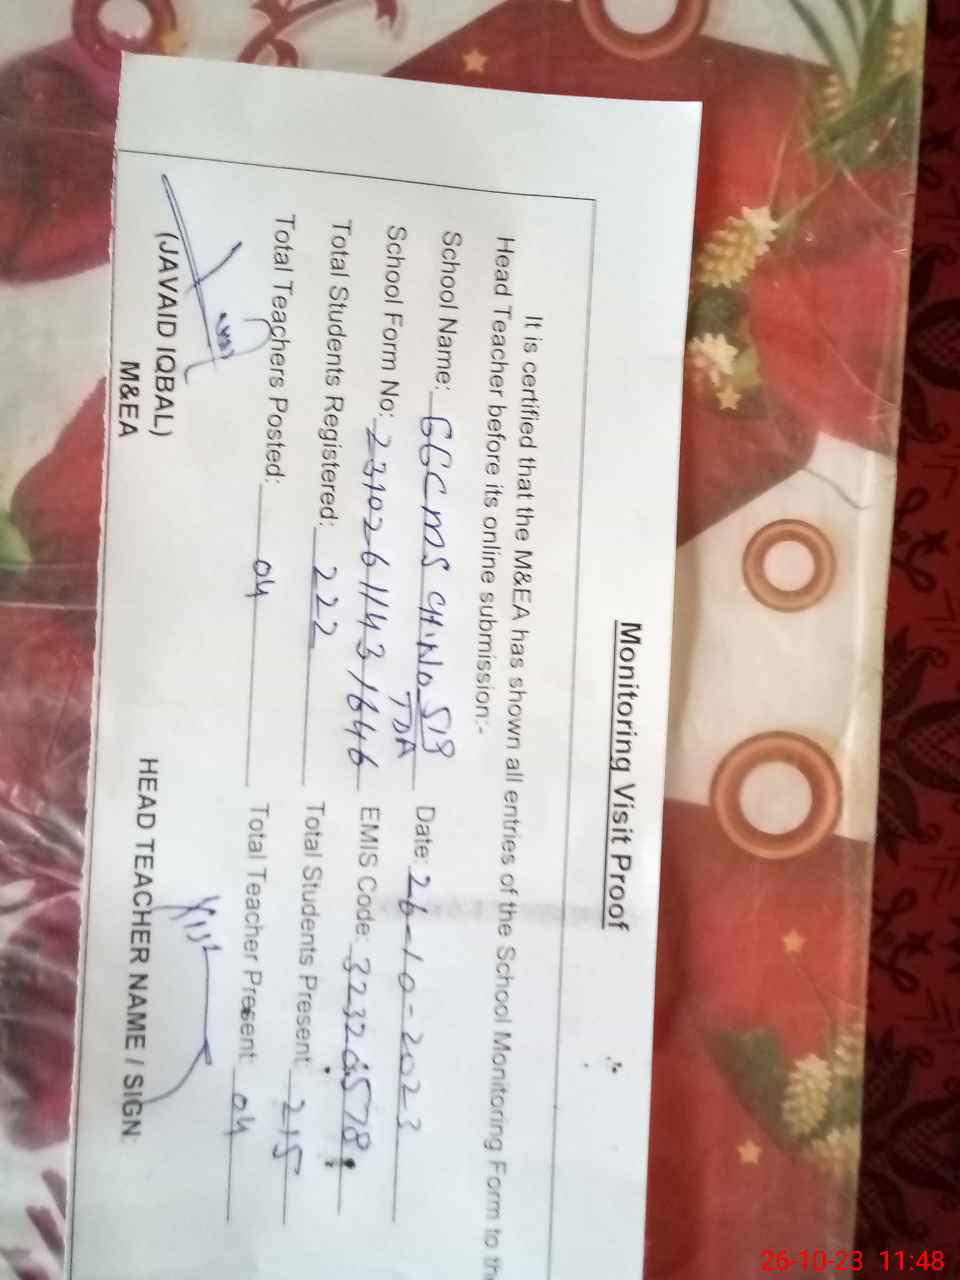 Monitoring Visit Proof
It is certified that the M&EA has shown all entries of the School Monitoring Form to th
Head Teacher before its online submission:-
School Name: GGCMS CH.No 519 TDA Date: 26-10-2023
School Form No: 23102611431646 EMIS Code: 32326578
Total Students Registered: 222 Total Students Present: 215
Total Teachers Posted: 04 Total Teacher Present: 04
(JAVAID IQBAL)
M&EA
HEAD TEACHER NAME / SIGN:
26-10-23 11:48